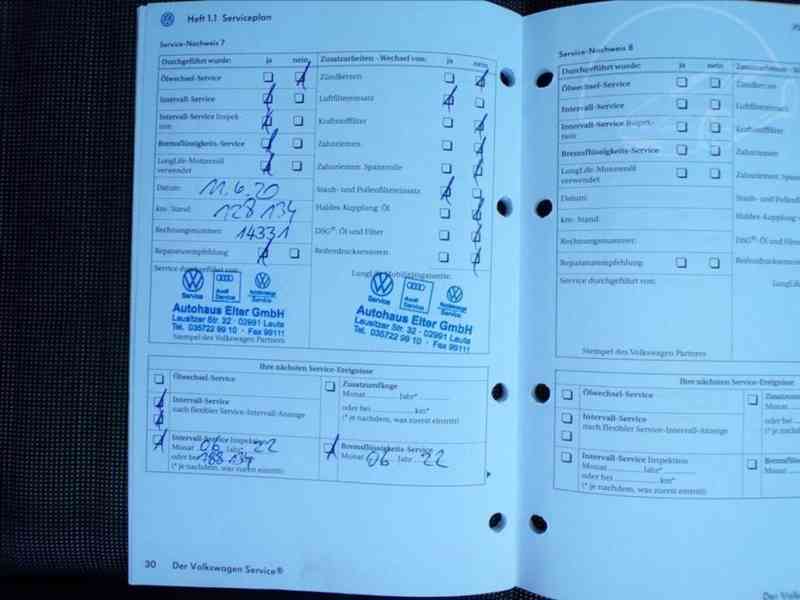 Heft 1.1 Serviceplan
Service-Nachweis 7
Durchgeführt wurde: ja nein
Ölwechsel-Service
Intervall-Service
Intervall-Service Inspek-
tion
Bremsflüssigkeits-Service
LongLife-Motorenöl
verwendet
Datum: 11.6.20
km-Stand: 128 134
Rechnungsnummer: 14331
Reparaturempfehlung
Service durchgeführt von:
Zusatzarbeiten - Wechsel von: ja nein
Zündkerzen
Luftfiltereinsatz
Kraftstofffilter
Zahnriemen
Zahnriemen: Spannrolle
Staub- und Pollenfiltereinsatz
Haldex-Kupplung: Öl
DSG®: Öl und Filter
Reifendrucksensoren
LongLife Mobilitätsgarantie
Service
Audi
Service
Service
Autohaus Elter GmbH
Lausitzer Str. 32 · 02991 Lauta
Tel. 035722 99 10 · Fax 99111
Stempel des Volkswagen Partners
Service
Audi
Service
Service
Autohaus Elter GmbH
Lausitzer Str. 32 · 02991 Lauta
Tel. 035722 99 10 · Fax 99111
Ihre nächsten Service-Ereignisse
Ölwechsel-Service
Intervall-Service
nach flexibler Service-Intervall-Anzeige
Intervall-Service Inspektion
Monat 06 Jahr* 22
oder bei 188 134
(* je nachdem, was zuerst eintritt)
Zusatzumfänge
Monat Jahr*
oder bei km*
(* je nachdem, was zuerst eintritt)
Bremsflüssigkeits-Service
Monat 06 Jahr 22
30 Der Volkswagen Service®
Service-Nachweis 8
Durchgeführt wurde: ja nein
Ölwechsel-Service
Intervall-Service
Intervall-Service Inspek-
tion
Bremsflüssigkeits-Service
LongLife-Motorenöl
verwendet
Datum:
km-Stand:
Rechnungsnummer:
Reparaturempfehlung
Service durchgeführt von:
Zündkerzen
Luftfilterein
Kraftstofffilter
Zahnriemen
Zahnriemen: Spann
Staub- und Pollen
Haldex-Kupplung:
DSG®: Öl und Fil
Reifendrucksens
Stempel des Volkswagen Partners
Ihre nächsten Service-Ereignisse
Ölwechsel-Service
Intervall-Service
nach flexibler Service-Intervall-Anzeige
Intervall-Service Inspektion
Monat Jahr*
oder bei km*
(* je nachdem, was zuerst eintritt)
Monat
oder bei
(* je nach
Bremsflüss
Monat
Der Volks